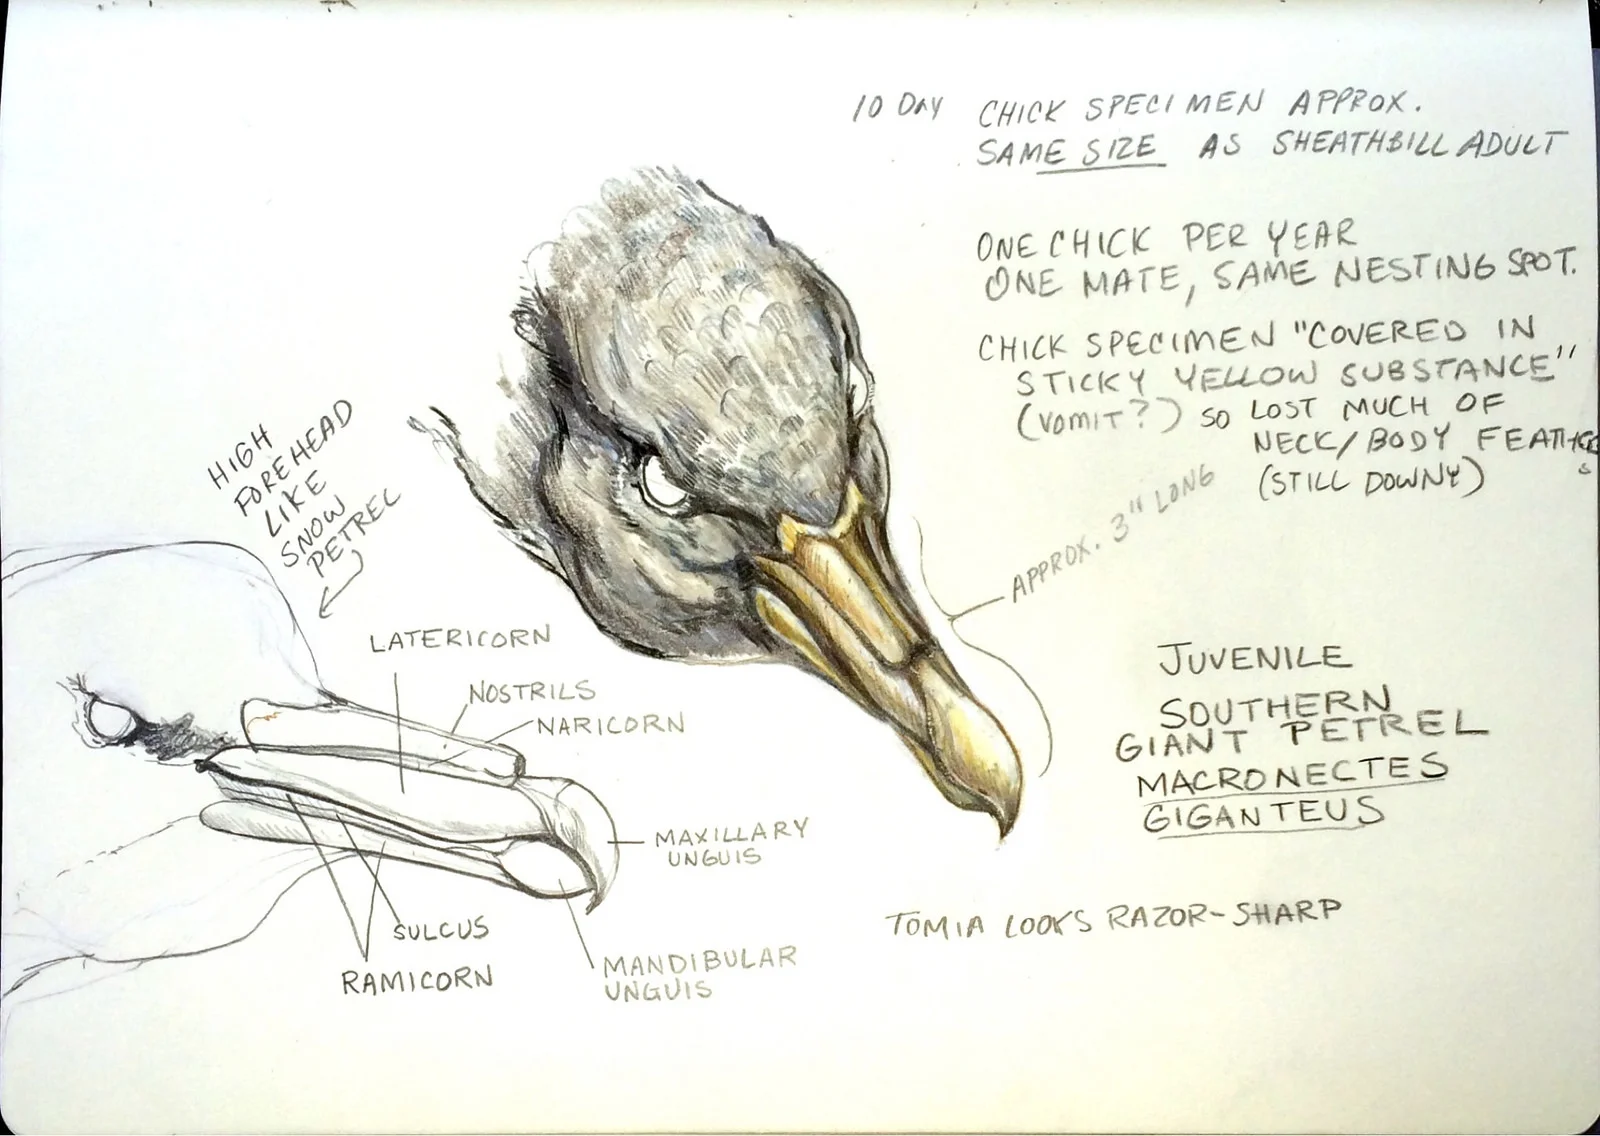 10 DAY CHICK SPECIMEN APPROX.
SAME SIZE AS SHEATHBILL ADULT
ONE CHICK PER YEAR
ONE MATE, SAME NESTING SPOT.
CHICK SPECIMEN "COVERED IN
STICKY YELLOW SUBSTANCE"
(VOMIT?) SO LOST MUCH OF
NECK/BODY FEATHERS
(STILL DOWNY)
APPROX. 3" LONG
HIGH
FOREHEAD
LIKE
SNOW
PETREL
LATERICORN
NOSTRILS
NARICORN
MAXILLARY
UNGUIS
SULCUS
RAMICORN
MANDIBULAR
UNGUIS
JUVENILE
SOUTHERN
GIANT PETREL
MACRONECTES
GIGANTEUS
TOMIA LOOKS RAZOR-SHARP